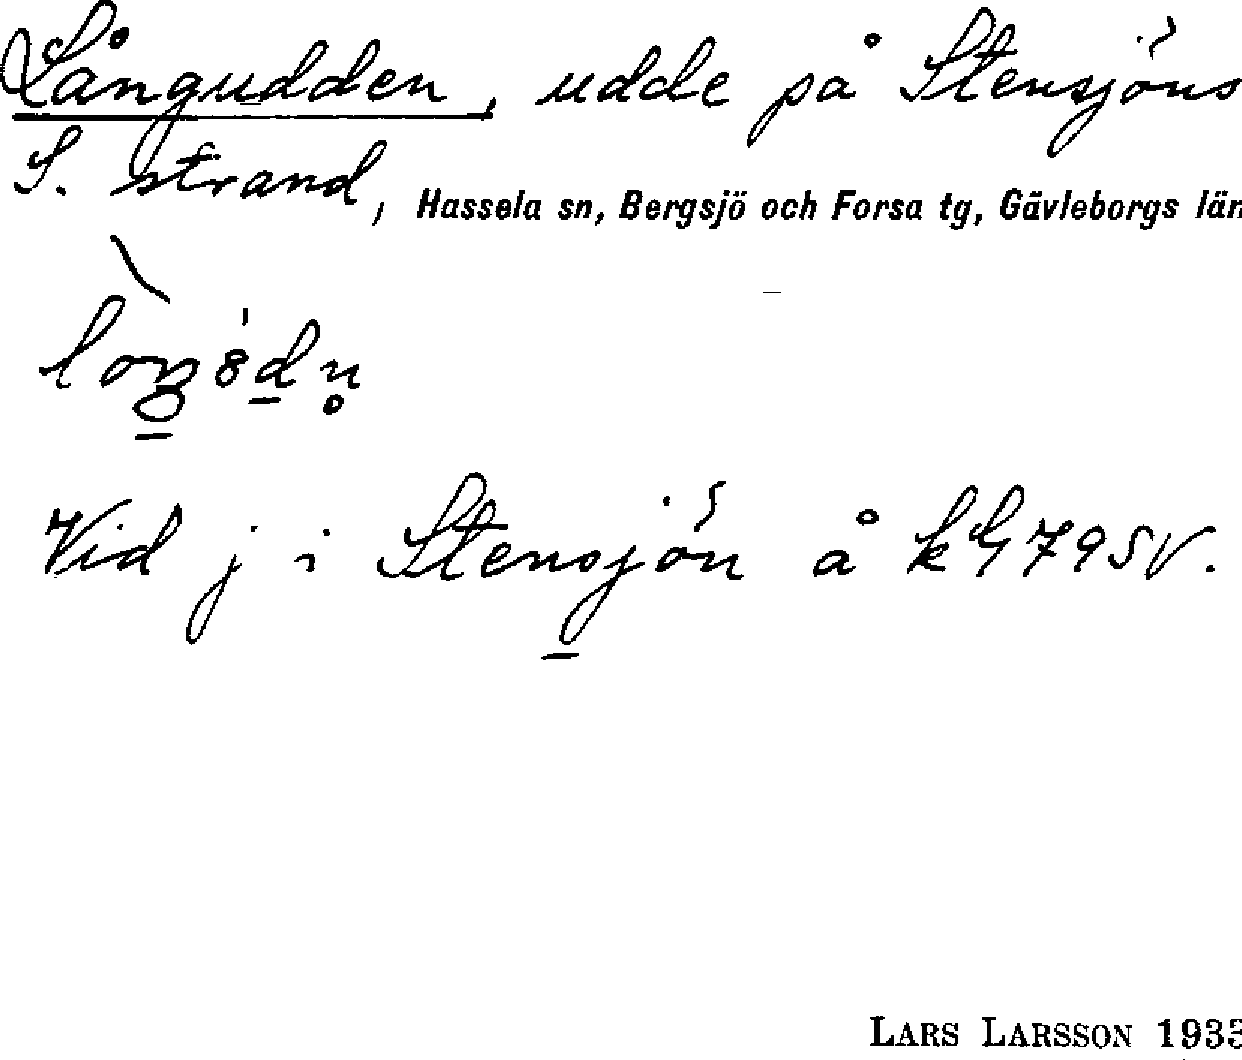 Långudden, udde på Stensjöns
S. strand, Hassela sn, Bergsjö och Forsa tg, Gävleborgs län
Vid j i Stensjön å kG 79 SV.
LARS LARSSON 1935